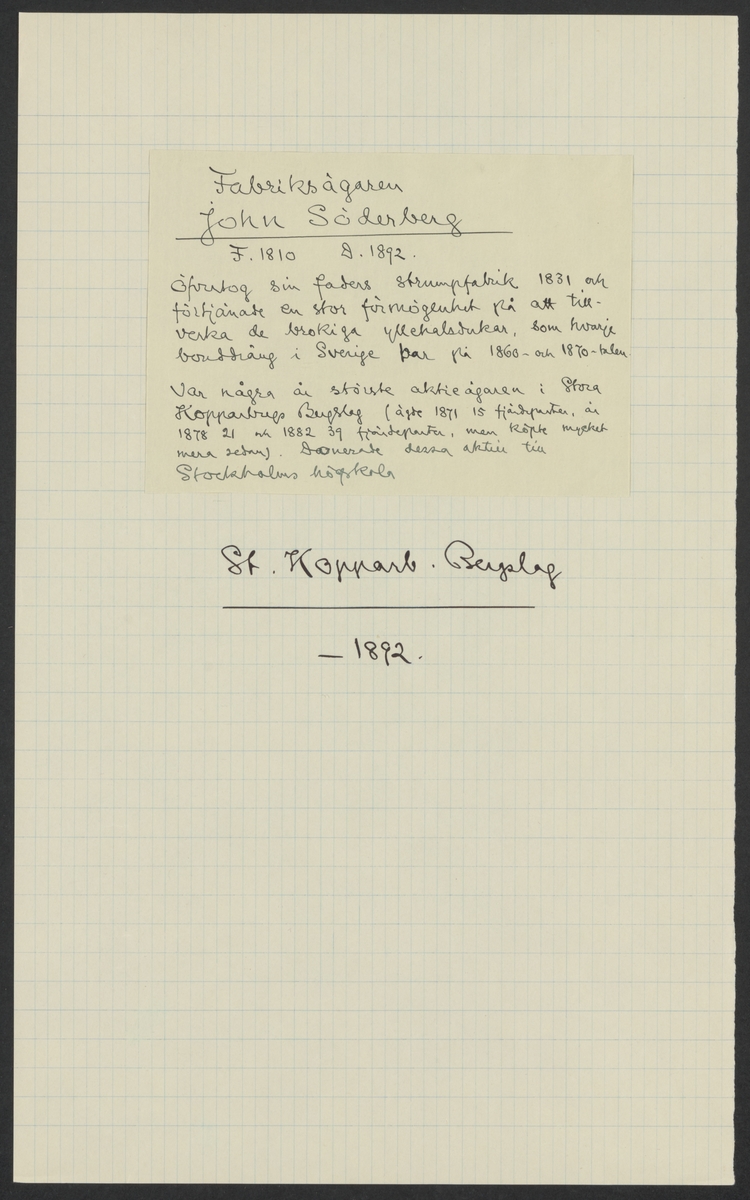 Fabriksägaren
John Söderberg
F. 1810 D. 1892.
Öfvertog sin faders strumpfabrik 1831 och
förtjänade en stor förmögenhet på att till-
verka de brokiga yllehalsdukar, som hvarje
bonddräng i Sverige bar på 1860- och 1870-talen.
Var några år störste aktieägaren i Stora
Kopparbergs Bergslag (ägde 1871 15 fjärdeparter, år
1878 21 och 1882 39 fjärdeparter, men köpte mycket
mera sedan). Donerade dessa aktier till
Stockholms högskola
St. Kopparb. Bergslag
— 1892.